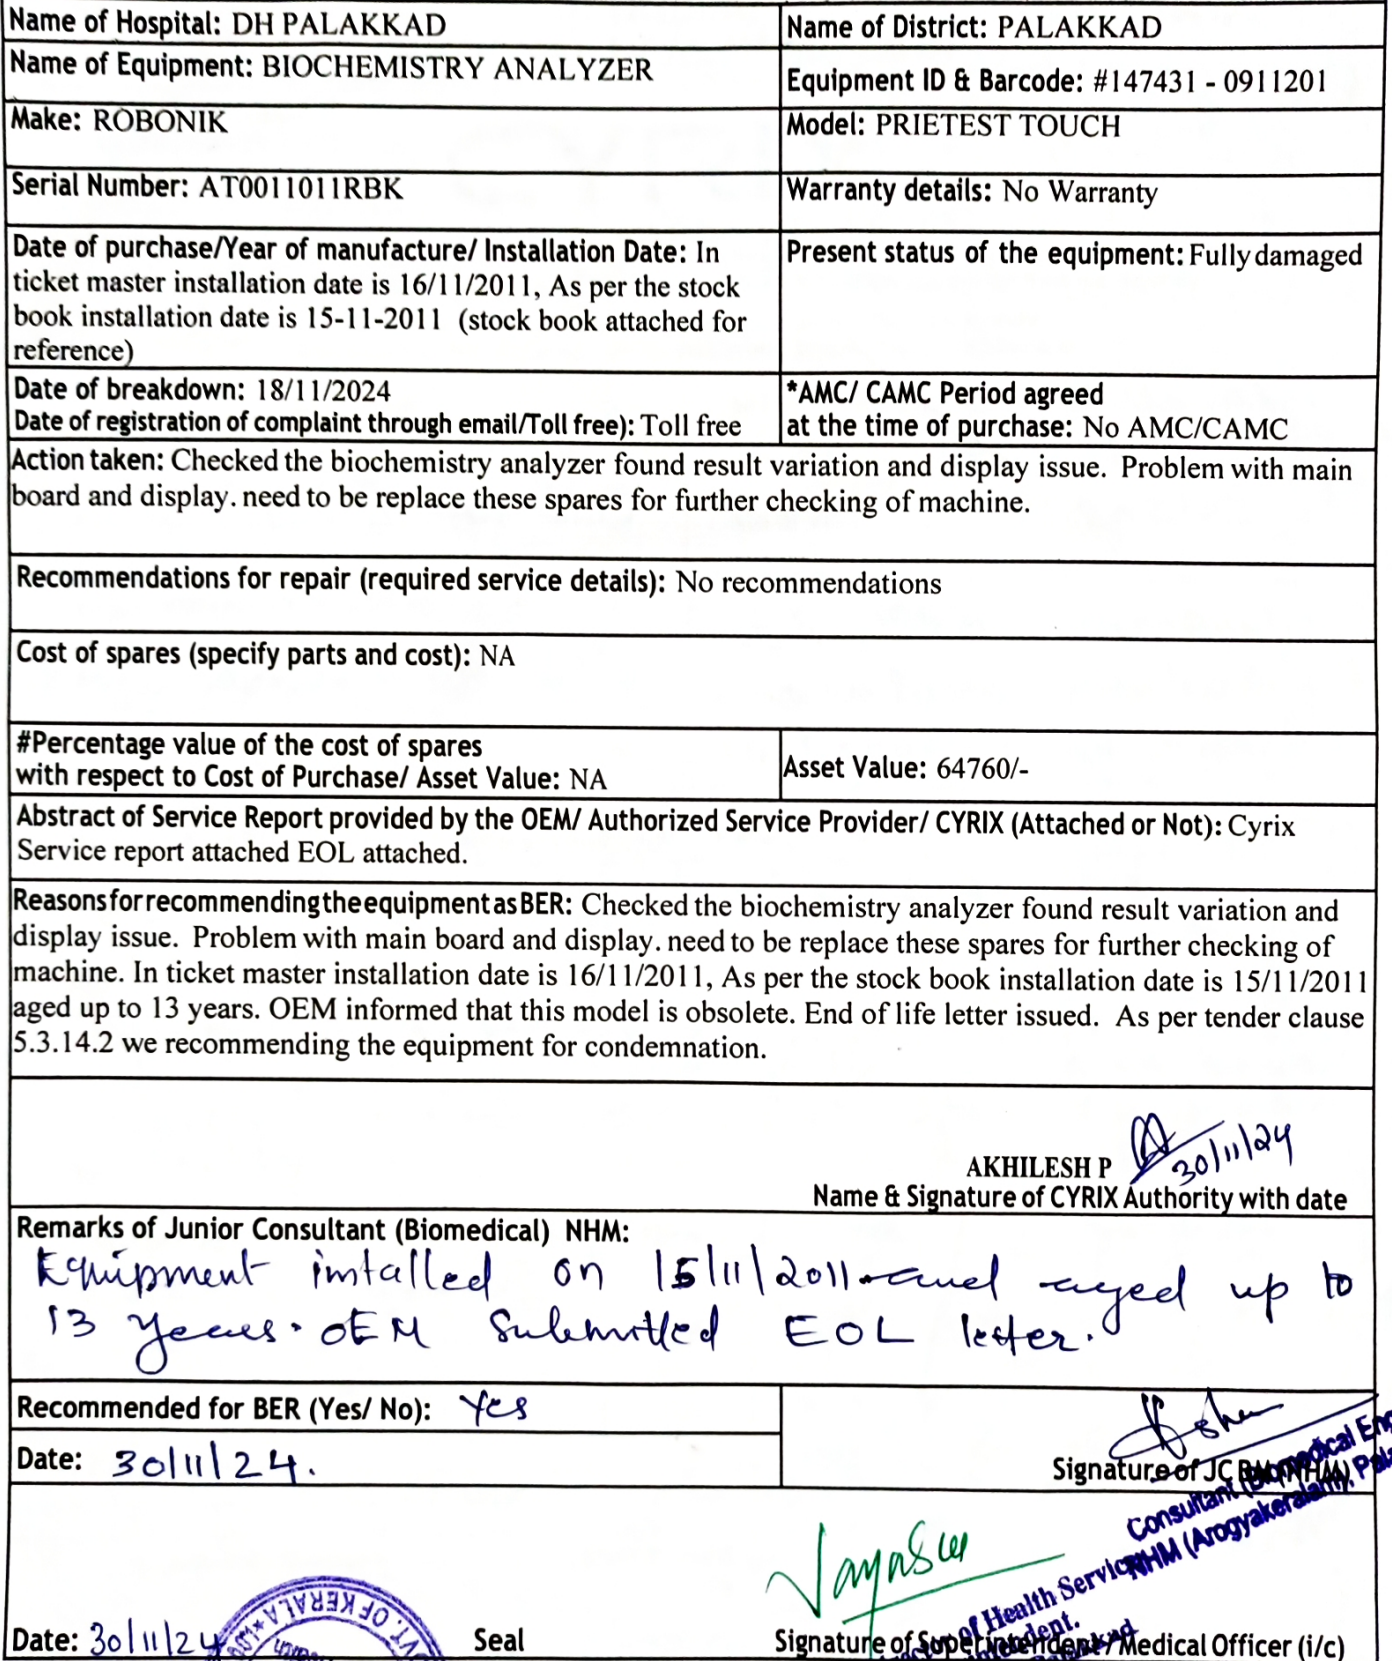 Name of Hospital: DH PALAKKAD
Name of District: PALAKKAD
Name of Equipment: BIOCHEMISTRY ANALYZER
Equipment ID & Barcode: #147431 - 0911201
Make: ROBONIK
Model: PRIETEST TOUCH
Serial Number: AT0011011RBK
Warranty details: No Warranty
Date of purchase/Year of manufacture/ Installation Date: In
ticket master installation date is 16/11/2011, As per the stock
book installation date is 15-11-2011 (stock book attached for
reference)
Present status of the equipment: Fully damaged
Date of breakdown: 18/11/2024
Date of registration of complaint through email/Toll free): Toll free
*AMC/ CAMC Period agreed
at the time of purchase: No AMC/CAMC
Action taken: Checked the biochemistry analyzer found result variation and display issue. Problem with main
board and display. need to be replace these spares for further checking of machine.
Recommendations for repair (required service details): No recommendations
Cost of spares (specify parts and cost): NA
#Percentage value of the cost of spares
with respect to Cost of Purchase/ Asset Value: NA
Asset Value: 64760/-
Abstract of Service Report provided by the OEM/ Authorized Service Provider/ CYRIX (Attached or Not): Cyrix
Service report attached EOL attached.
Reasons for recommending the equipment as BER: Checked the biochemistry analyzer found result variation and
display issue. Problem with main board and display. need to be replace these spares for further checking of
machine. In ticket master installation date is 16/11/2011, As per the stock book installation date is 15/11/2011
aged up to 13 years. OEM informed that this model is obsolete. End of life letter issued. As per tender clause
5.3.14.2 we recommending the equipment for condemnation.
AKHILESH P 30/11/24
Name & Signature of CYRIX Authority with date
Remarks of Junior Consultant (Biomedical) NHM:
Equipment installed on 15/11/2011 and aged up to
13 years. OEM Submitted EOL letter.
Recommended for BER (Yes/ No): Yes
Date: 30/11/24.
Signature of JC BM (NHM)
Consultant (Biomedical Eng
NHM (Arogyakeralam), Pala
of Health Services
Date: 30/11/24
GOVT. OF KERALA
Seal
Signature of Superintendent/Medical Officer (i/c)